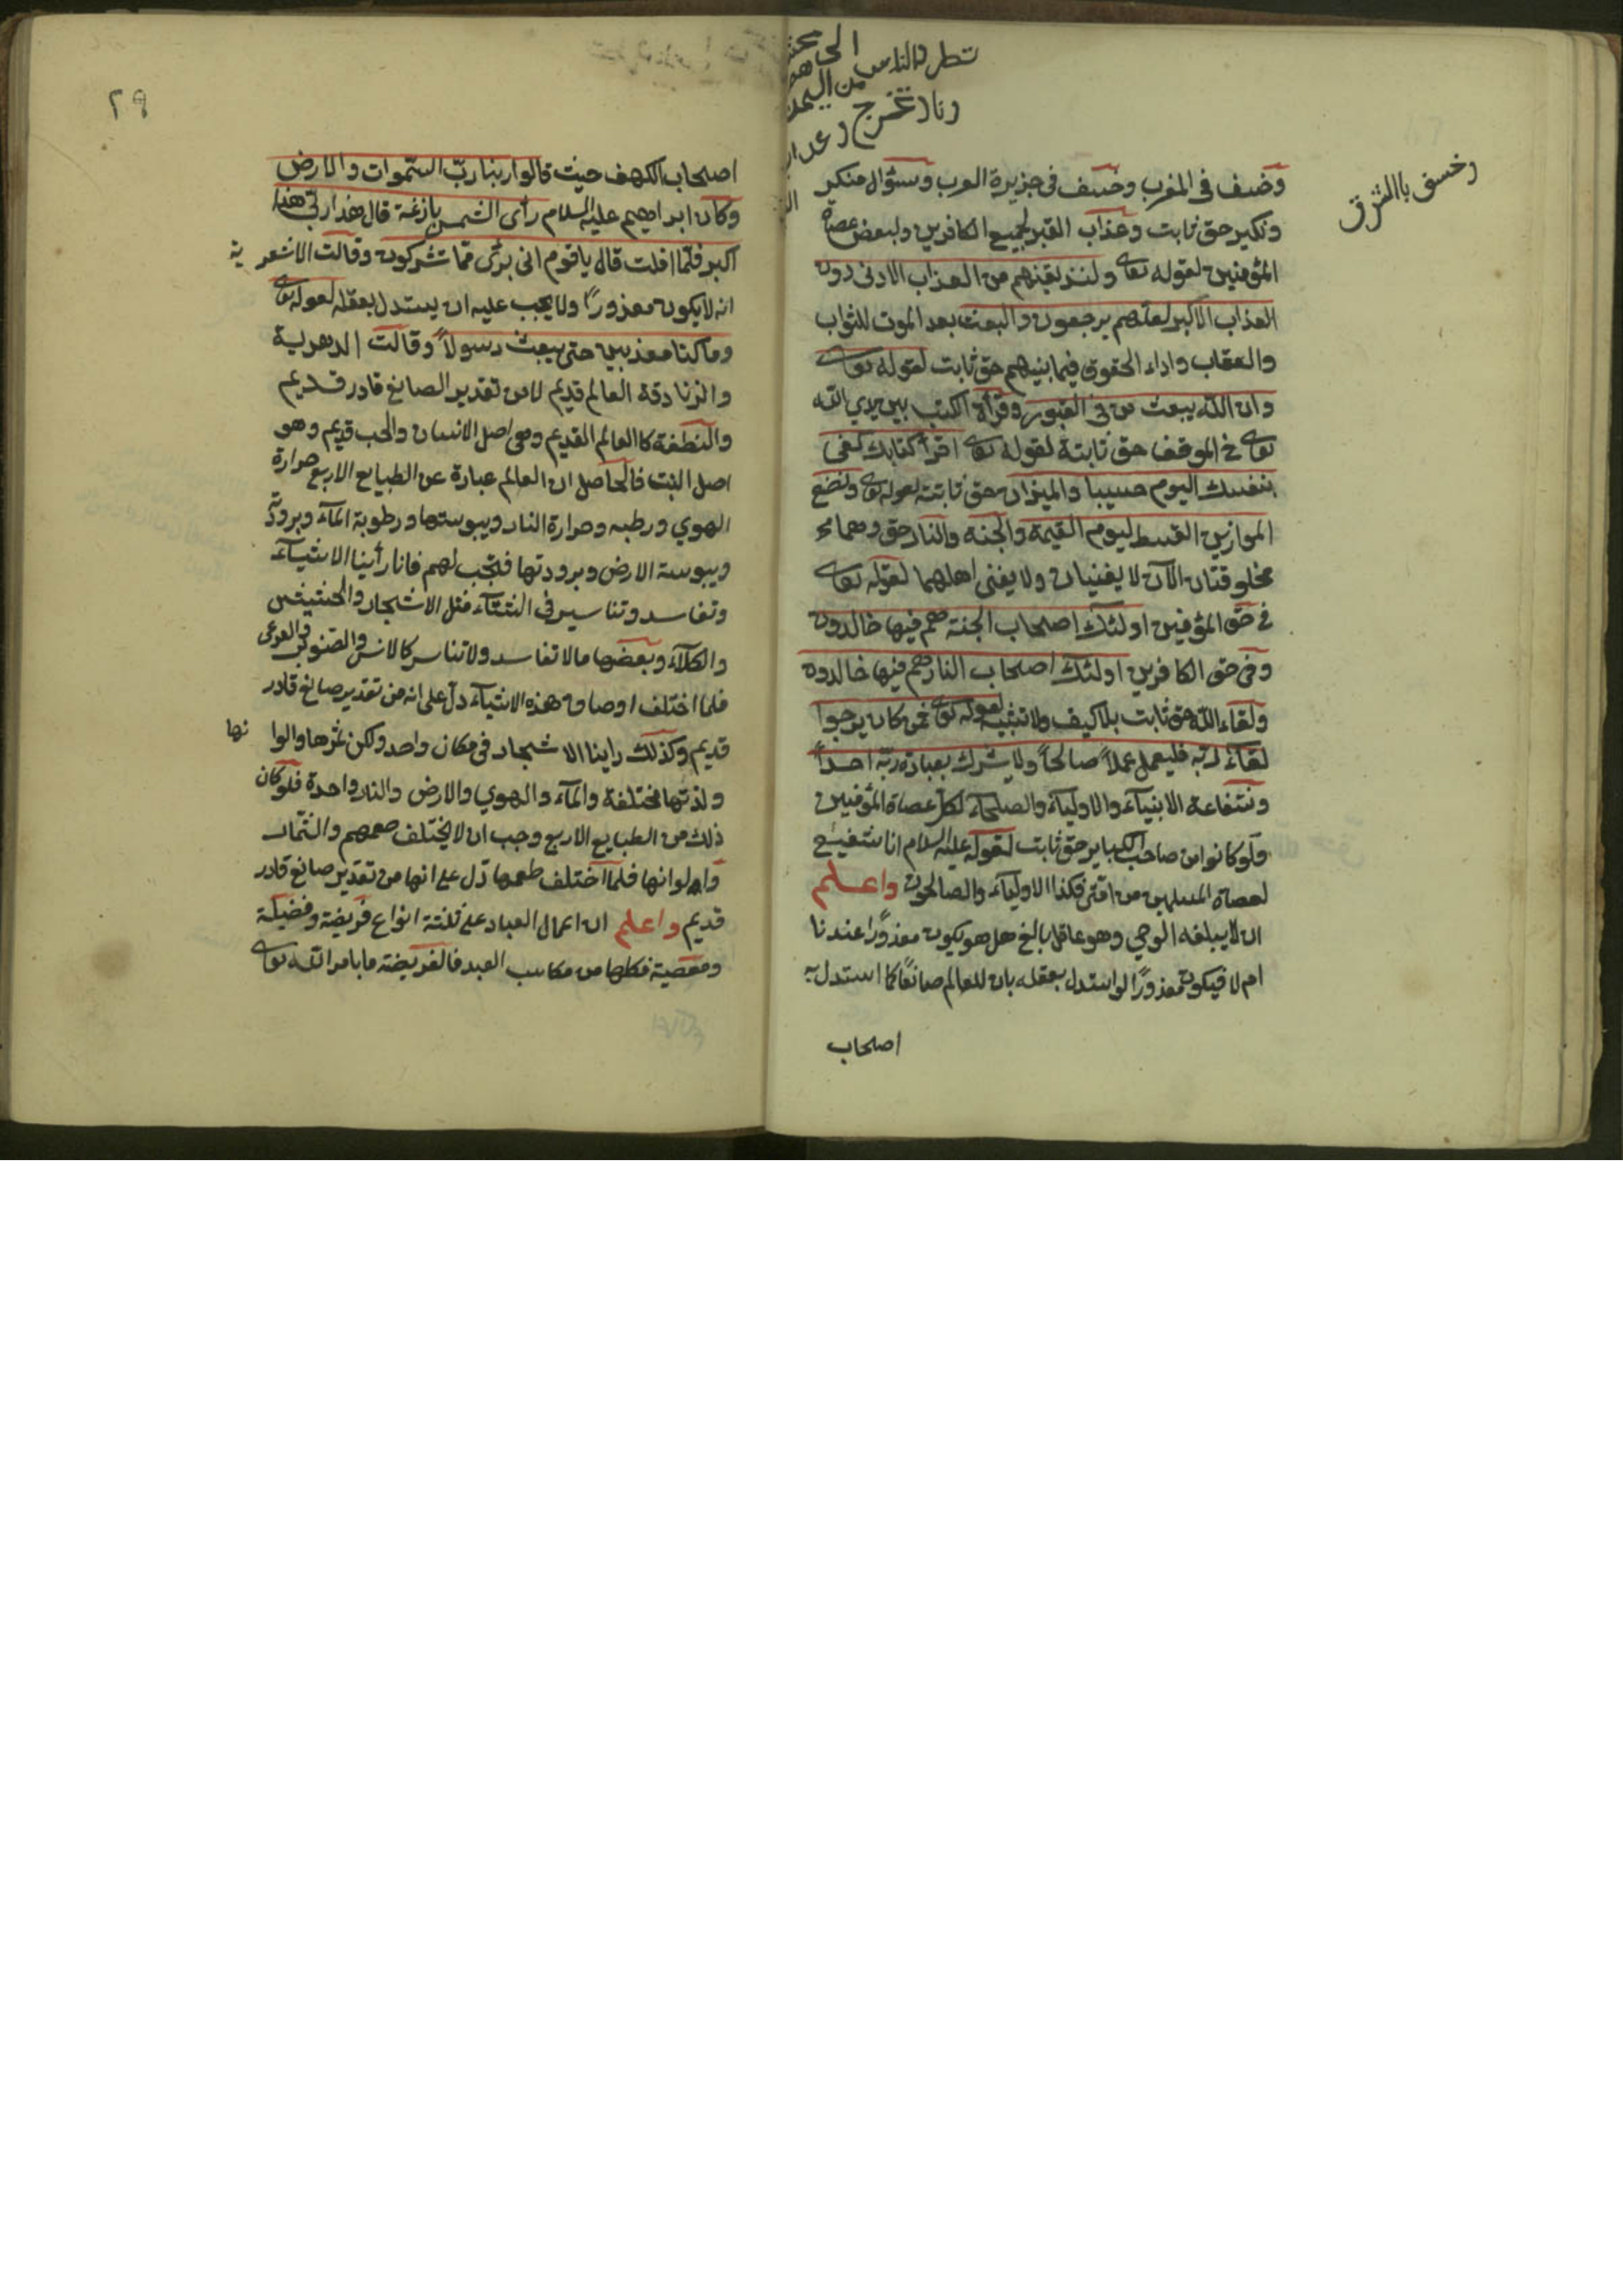 وخسف باالشرق
تطرد الناس الى
من اليمن
ونار تخرج
وخسف فى المغرب وخسف فى جزيرة العرب وسؤال منكر
ونكير حق ثابت وعذاب القبر لجميع الكافرين ولبعض عصاة
المؤمنين لقوله تعالى ولنذيقنهم من العذاب الادنى دون
العذاب الاكبر لعلهم يرجعون والبعث بعد الموت للثواب
والعقاب واداء الحقوق فيما بينهم حق ثابت لقوله تعالى
وان الله يبعث من فى القبور وقرأة الكتب بين يدي الله
تعالى فى الموقف حق ثابتة لقوله تعالى اقرأ كتابك كفى
بنفسك اليوم حسيبا والميزان حق ثابتته لقوله تعالى ونضع
الموازين القسط ليوم القيمة والجنة والنار حق وهما
مخلوقتان الآن لا يفنيان ولا يفنى اهلهما لقوله تعالى
فى حق المؤمنين اولئك اصحاب الجنة هم فيها خالدون
وفى حق الكافرين اولئك اصحاب النار هم فيها خالدون
ولقاء الله حق ثابت بلا كيف ولا تشبيه لقوله تعالى فمن كان يرجوا
لقاء ربه فليعمل عملاً صالحاً ولا يشرك بعبادة ربه احداً
وشفاعة الانبيآء والاوليآء والصلحآء لكل عصاة المؤمنين
ولو كانوا من صاحب الكباير حق ثابت لقوله عليه السلام انا شفيع
لعصاة المسلمين من امتى فكذا الاوليآء والصالحون واعلم
ان لا يبلغه الوحي وهو عاقل بالغ هل هو يكون معذوراً عندنا
ام لا فيكون معذوراً لو استدل بعقله بان للعالم صانعاً كما استدل به
اصحاب
٢٩
اصحاب الكهف حيث قالوا ربنا ربّ السّموات والارض
وكان ابراهيم عليه السلام رأى الشمس بازغة قال هذا ربّى هذا
اكبر فلمّا افلت قال ياقوم انى برئ ممّا تشركون وقالت الاشعرية
انه لا يكون معذوراً ولا يجب عليه ان يستدل بعقله لقوله تعالى
وما كنا معذبين حتى نبعث رسولاً وقالت الدهرية
والزنادقة العالم قديم لا من تقدير الصانع قادر قديم
والنطفة كالعالم القديم وهى اصل الانسان والحب قديم وهو
اصل النبت فالحاصل ان العالم عبارة عن الطبايع الاربع حرارة
الهوي ورطبه وحرارة النار ويبوستها ورطوبة المآء وبرودته
ويبوسة الارض وبرودتها فنجب لهم فانا رأينا الاشيآء
وتفاسد وتناسر فى الشتآء مثل الاشجار والحشيش
والكلآء وبعضها مالا تفاسد ولا تناسر كالانس والصنوبر والعرعر
فلما اختلف اوصاف هذه الاشيآء دل على انه من تقدير صانع قادر
قديم وكذلك راينا الاشجار فى مكان واحد ولكن ثمرها والوانها
ولذتها مختلفة والمآء والهوي والارض والنار واحدة فلو كان
ذلك من الطبايع الاربع وجب ان لا يختلف طعمهم والثمار
والوانها فلما اختلف طعمها دل على انها من تقدير صانع قادر
قديم واعلم ان اعمال العباد على ثلثة انواع فريضة وفضيلة
ومعصية فكلها من مكاسب العبد فالفريضة ما بامر الله تعالى